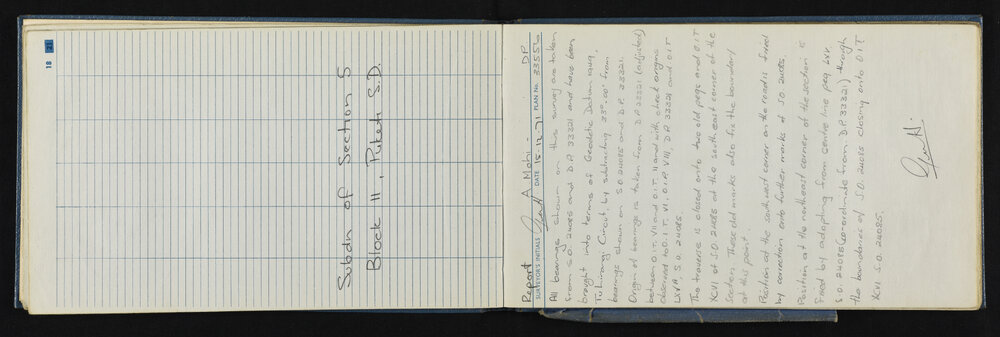 18 21
Subdn of Section 5
Block III, Puketi S.D.
Report A Mohi - DP
SURVEYOR'S INITIALS DATE 15.12.71 PLAN No. 33556
All bearings shown on this survey are taken
from S.O. 24085 and D.P. 33321 and have been
brought into terms of Geodetic Datum 1949,
Circuit, by subtracting from
bearings shown on S.O 24085 and D.P. 33321.
Origin of bearings is taken from D.P 33321 (adjusted)
between O.I.T. VII and O.I.T. II and with check origins
observed to O.I.T. VI, O.I.P. VIII, D.P 33321 and O.I.T
S.O. 24085.
The traverse is closed onto two old pegs and O.I.T
XCVI of S.O. 24085 at the southeast corner of the
section. These old marks also fix the boundary
at this point.
Position at the southwest corner on the road is fixed
by connection onto further marks of S.O. 24085.
Position at the northeast corner of the section is
fixed by adopting from centre line peg LXV
S.O. 24085 (co-ordinate from D.P. 33321) through
the boundaries of S.O. 24085 closing onto O.I.T
XCVI S.O. 24085.